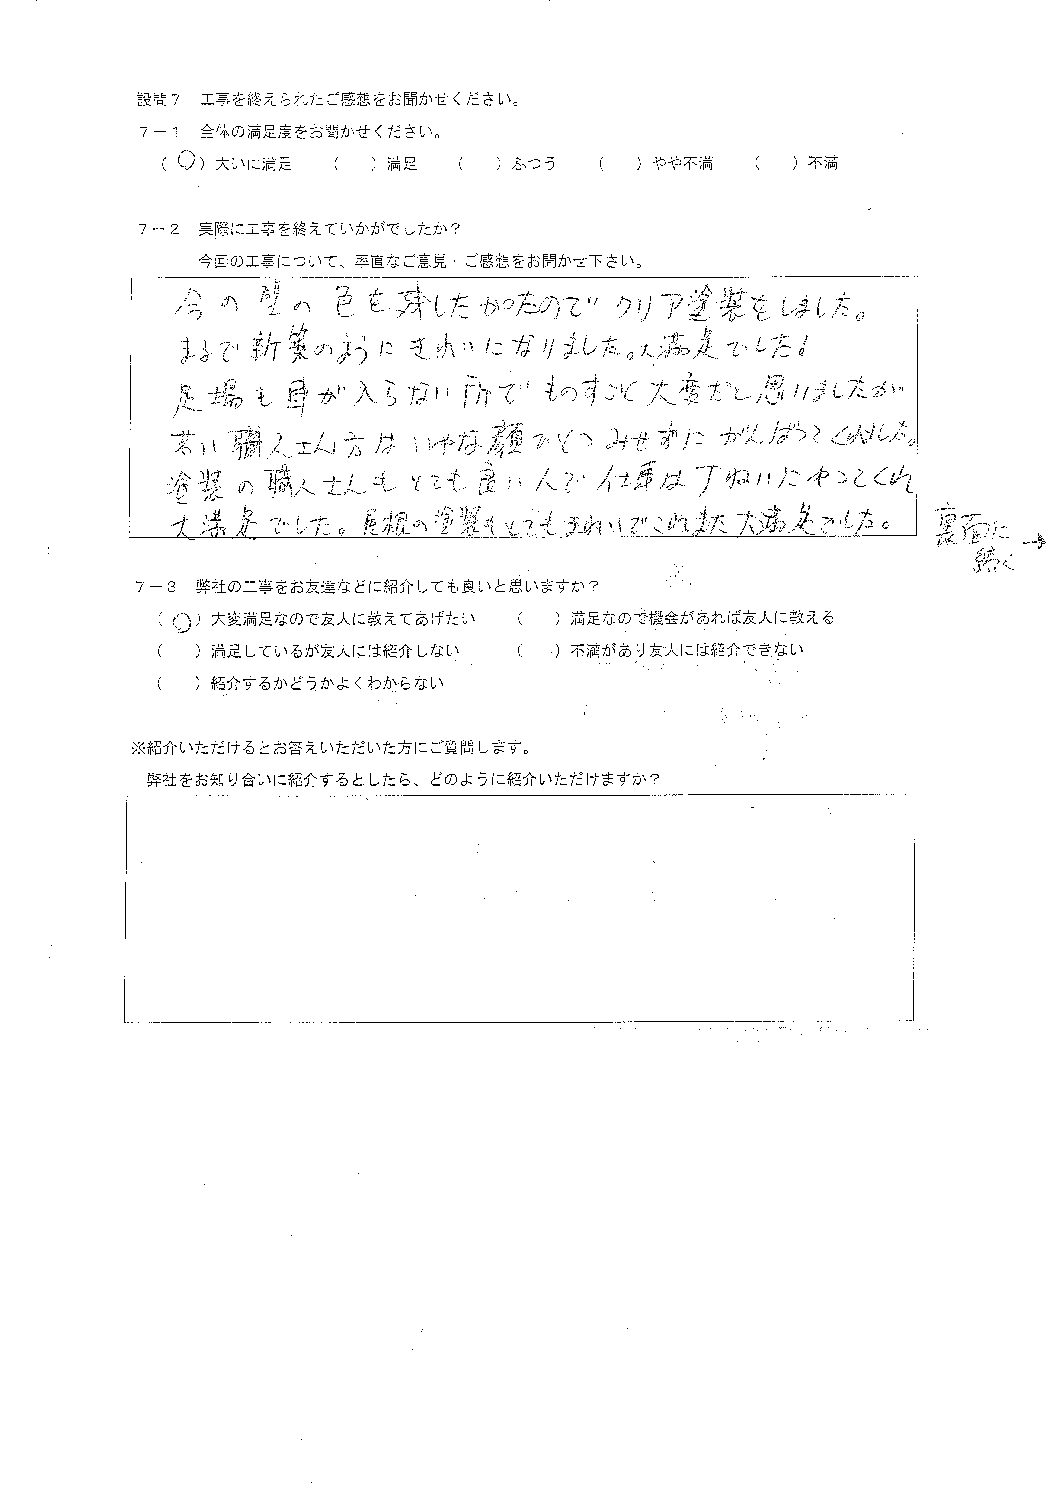 設問７　工事を終えられたご感想をお聞かせください。
７－１　全体の満足度をお聞かせください。
（○）大いに満足　（　）満足　（　）ふつう　（　）やや不満　（　）不満
７－２　実際に工事を終えていかがでしたか？
今回の工事について、率直なご意見・ご感想をお聞かせ下さい。
今の壁の色を残したかったのでクリア塗装をしました。
まるで新築のようにきれいになりました。大満足でした！
足場も車が入らない所でものすごく大変だと思いましたが
若い職人さん方はいやな顔ひとつみせずにがんばってくれました。
塗装の職人さんもとても良い人で仕事は丁ねいにやってくれ
大満足でした。屋根の塗装もとてもきれいでこれまた大満足でした。
裏面に
続く→
７－３　弊社の工事をお友達などに紹介しても良いと思いますか？
（○）大変満足なので友人に教えてあげたい　（　）満足なので機会があれば友人に教える
（　）満足しているが友人には紹介しない　（　）不満があり友人には紹介できない
（　）紹介するかどうかよくわからない
※紹介いただけるとお答えいただいた方にご質問します。
弊社をお知り合いに紹介するとしたら、どのように紹介いただけますか？